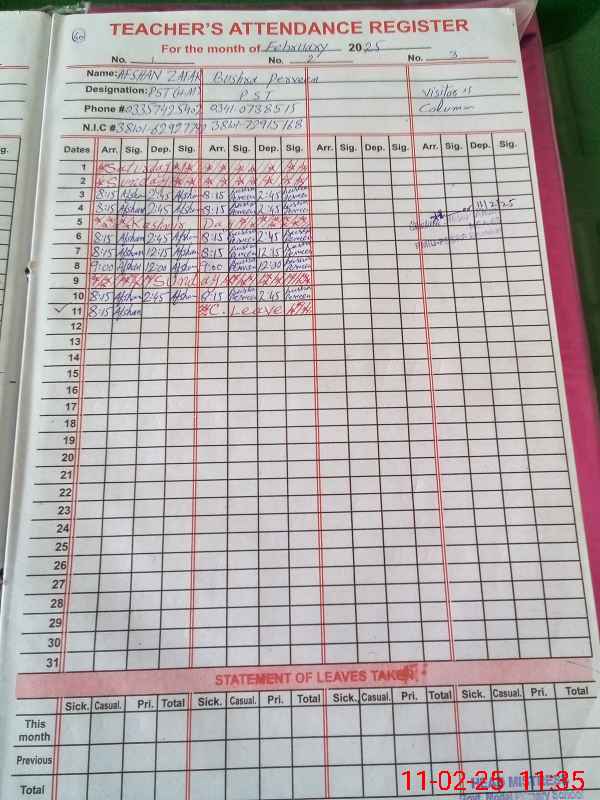 60
TEACHER'S ATTENDANCE REGISTER
For the month of February 2025
No. 1 No. 2 No. 3
Name: AFSHAN Bushra Perveen
Designation: PST (H.M) PST Visitor's
Phone # 03357425402 0341-0738515 Column
N.I.C # 38101-72915168
Dates Arr. Sig. Dep. Sig. Arr. Sig. Dep. Sig. Arr. Sig. Dep. Sig. Arr. Sig. Dep. Sig.
1 Saturday
2 Sunday
3 8:15 Afshan 2:45 Afshan 8:15 2:45
4 8:15 Afshan 2:45 Afshan 8:15 2:45 11/2/25
5 Kashmir Day
6 8:15 Afshan 2:45 Afshan 8:15 2:45
7 8:15 Afshan 12:15 Afshan 8:15
8 9:00 Afshan 12:00 Afshan 9:00
9 Sunday
10 8:15 Afshan 2:45 Afshan 8:15 2:45
11 8:15 Afshan C. Leave
12
13
14
15
16
17
18
19
20
21
22
23
24
25
26
27
28
29
30
31
STATEMENT OF LEAVES TAKEN
Sick. Casual. Pri. Total Sick. Casual. Pri. Total Sick. Casual. Pri. Total Sick. Casual. Pri. Total
This
month
Previous
Total
HEAD MISTRESS
Govt. Model Primary School
11-02-25 11:35